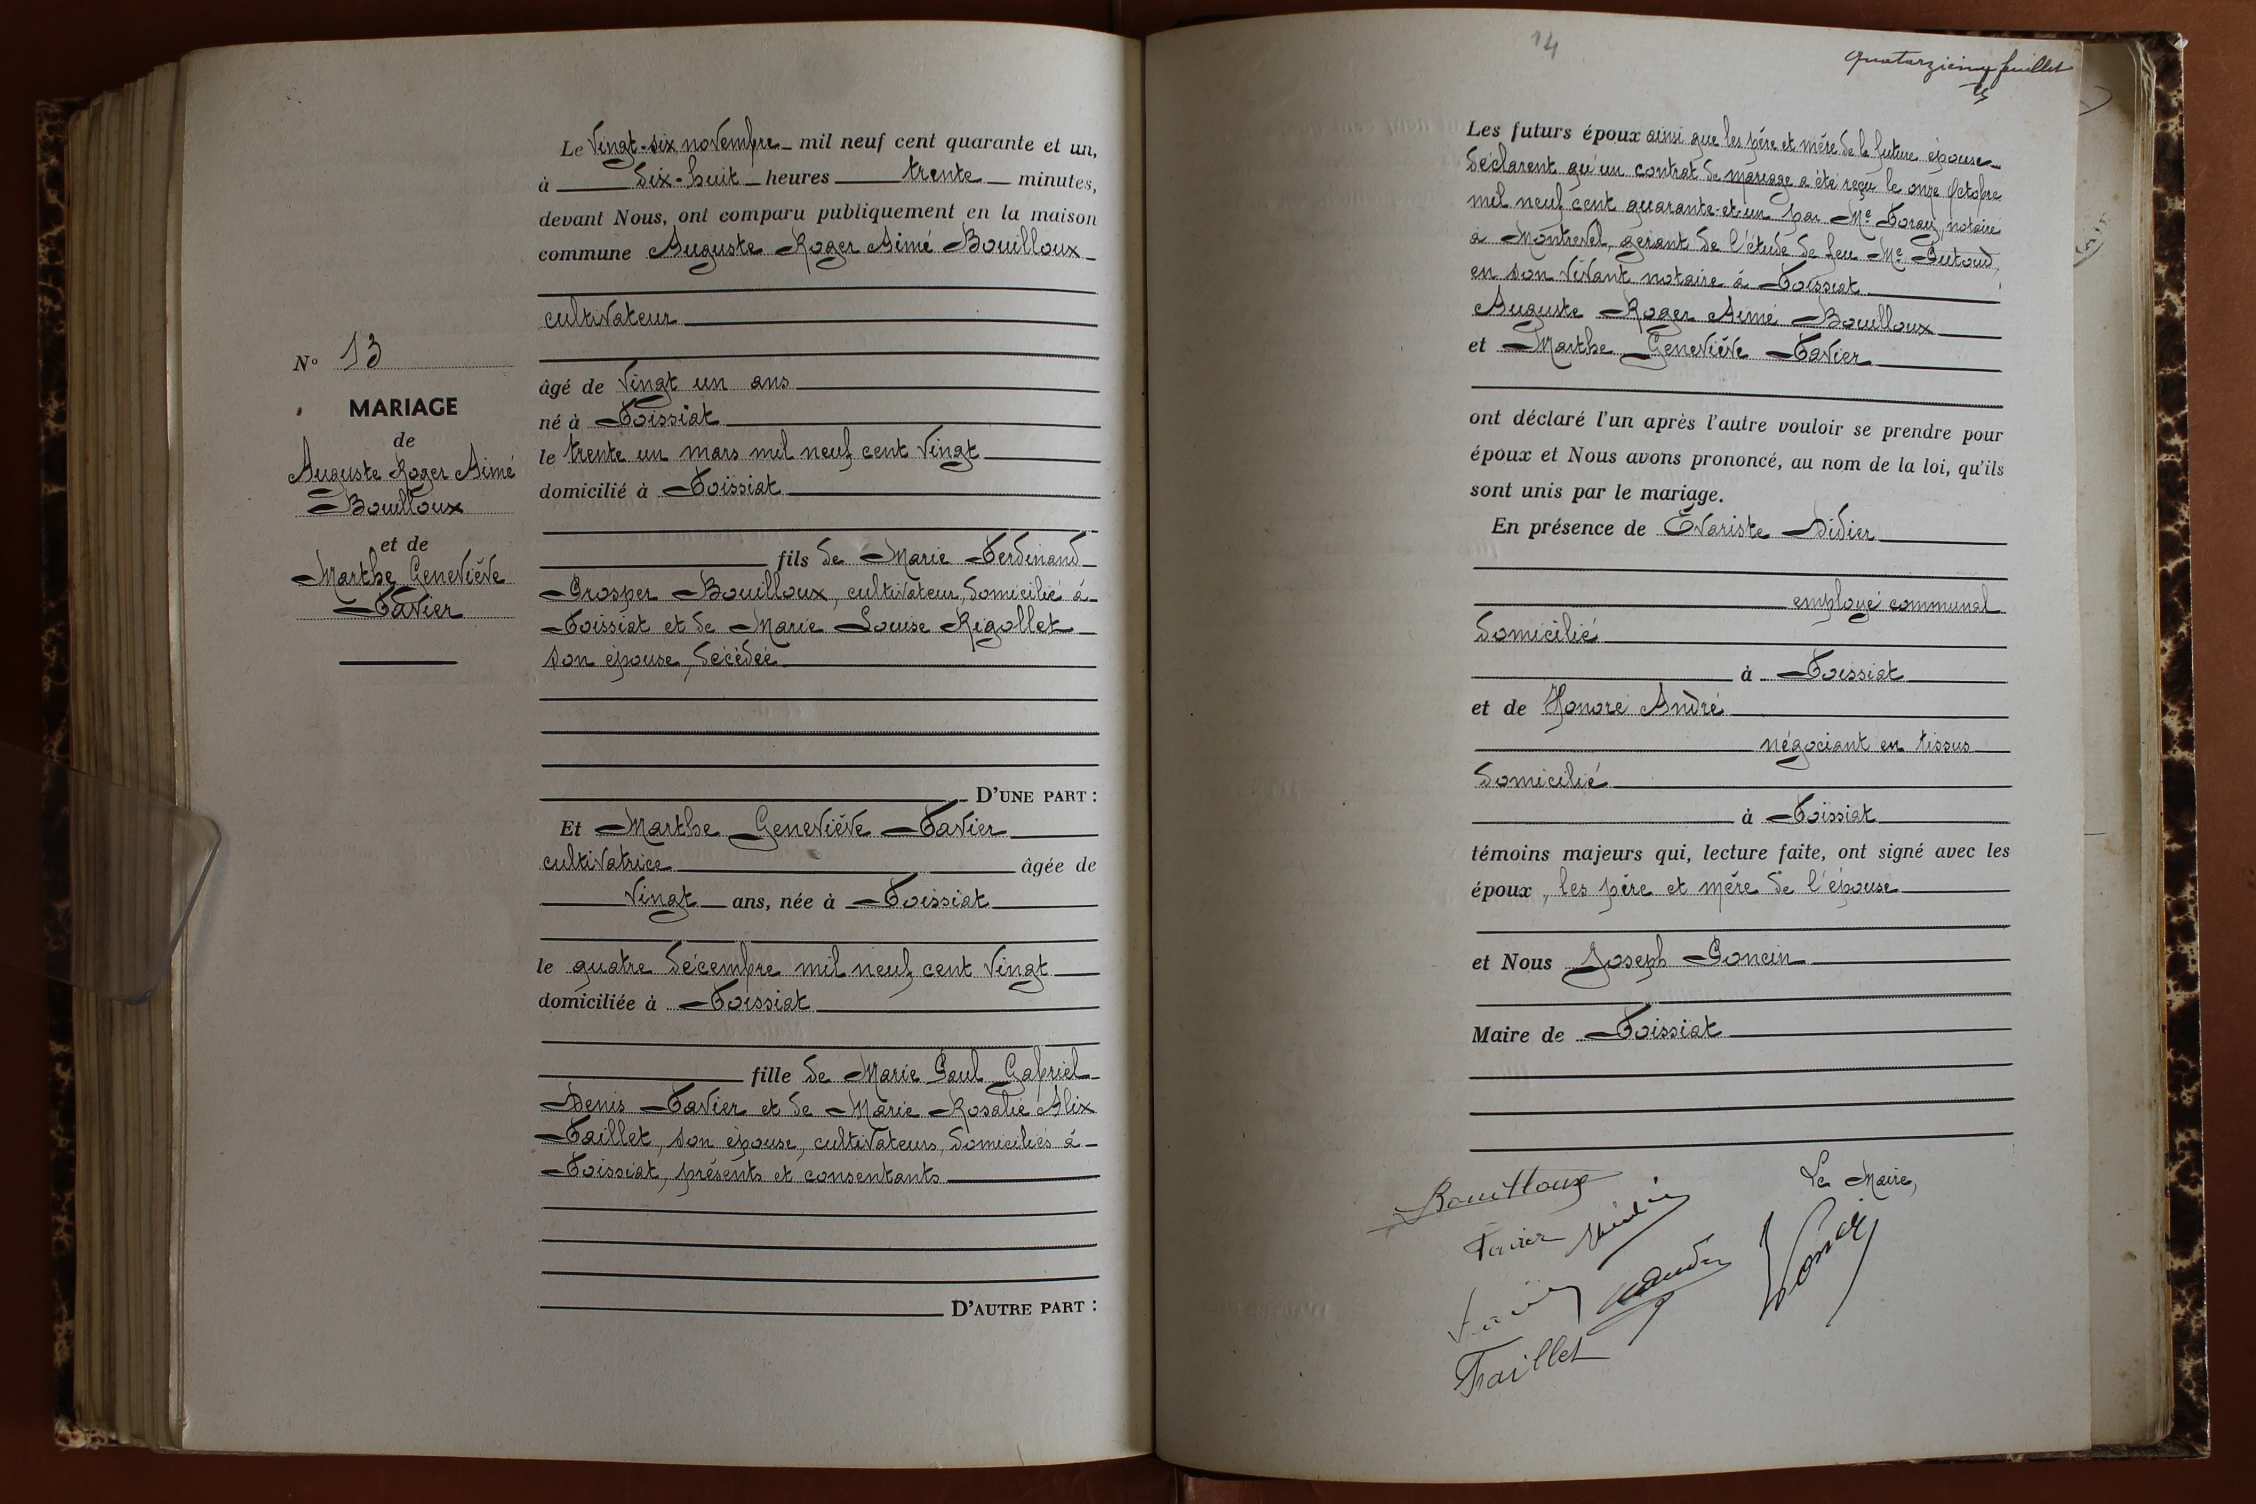 Le Vingt-six novembre mil neuf cent quarante et un,
à dix-huit heures trente minutes,
devant Nous, ont comparu publiquement en la maison
commune Auguste Roger Aimé Bouilloux
cultivateur
N° 13
MARIAGE
de
Auguste Roger Aimé
Bouilloux
et de
Marthe Geneviève
Favier
âgé de Vingt un ans
né à Foissiat
le trente un mars mil neuf cent Vingt
domicilié à Foissiat
fils de Marie Ferdinand
Prosper Bouilloux, cultivateur, domicilié à
Foissiat et de Marie Louise Rigollet
son épouse, décédée
D'UNE PART :
Et Marthe Geneviève Favier
cultivatrice âgée de
Vingt ans, née à Foissiat
le quatre décembre mil neuf cent Vingt
domiciliée à Foissiat
fille de Marie Paul Gabriel
Denis Favier et de Marie Rosalie Alix
Faillet, son épouse, cultivateurs, domiciliés à
Foissiat, présents et consentants
D'AUTRE PART :
14
quatorzième feuillet
Les futurs époux ainsi que les père et mère de la future épouse
déclarent qu'un contrat de mariage a été reçu le onze Octobre
mil neuf cent quarante-et-un par Me notaire
à Montrevel, gérant de l'étude de feu Me
en son Vivant notaire à Foissiat
Auguste Roger Aimé Bouilloux
et Marthe Geneviève Favier
ont déclaré l'un après l'autre vouloir se prendre pour
époux et Nous avons prononcé, au nom de la loi, qu'ils
sont unis par le mariage.
En présence de Évariste Didier
employé communal
domicilié
à Foissiat
et de Honoré André
négociant en tissus
domicilié
à Foissiat
témoins majeurs qui, lecture faite, ont signé avec les
époux, les père et mère de l'épouse
et Nous Joseph Poncin
Maire de Foissiat
Le Maire,
Bouilloux
Favier Didier
Faillet